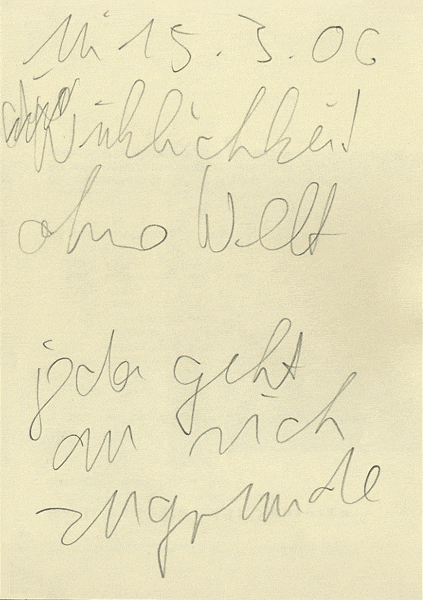 Mi 15.3.06
die Wirklichkeit
ohne Welt
jeder geht
an sich
zugrunde